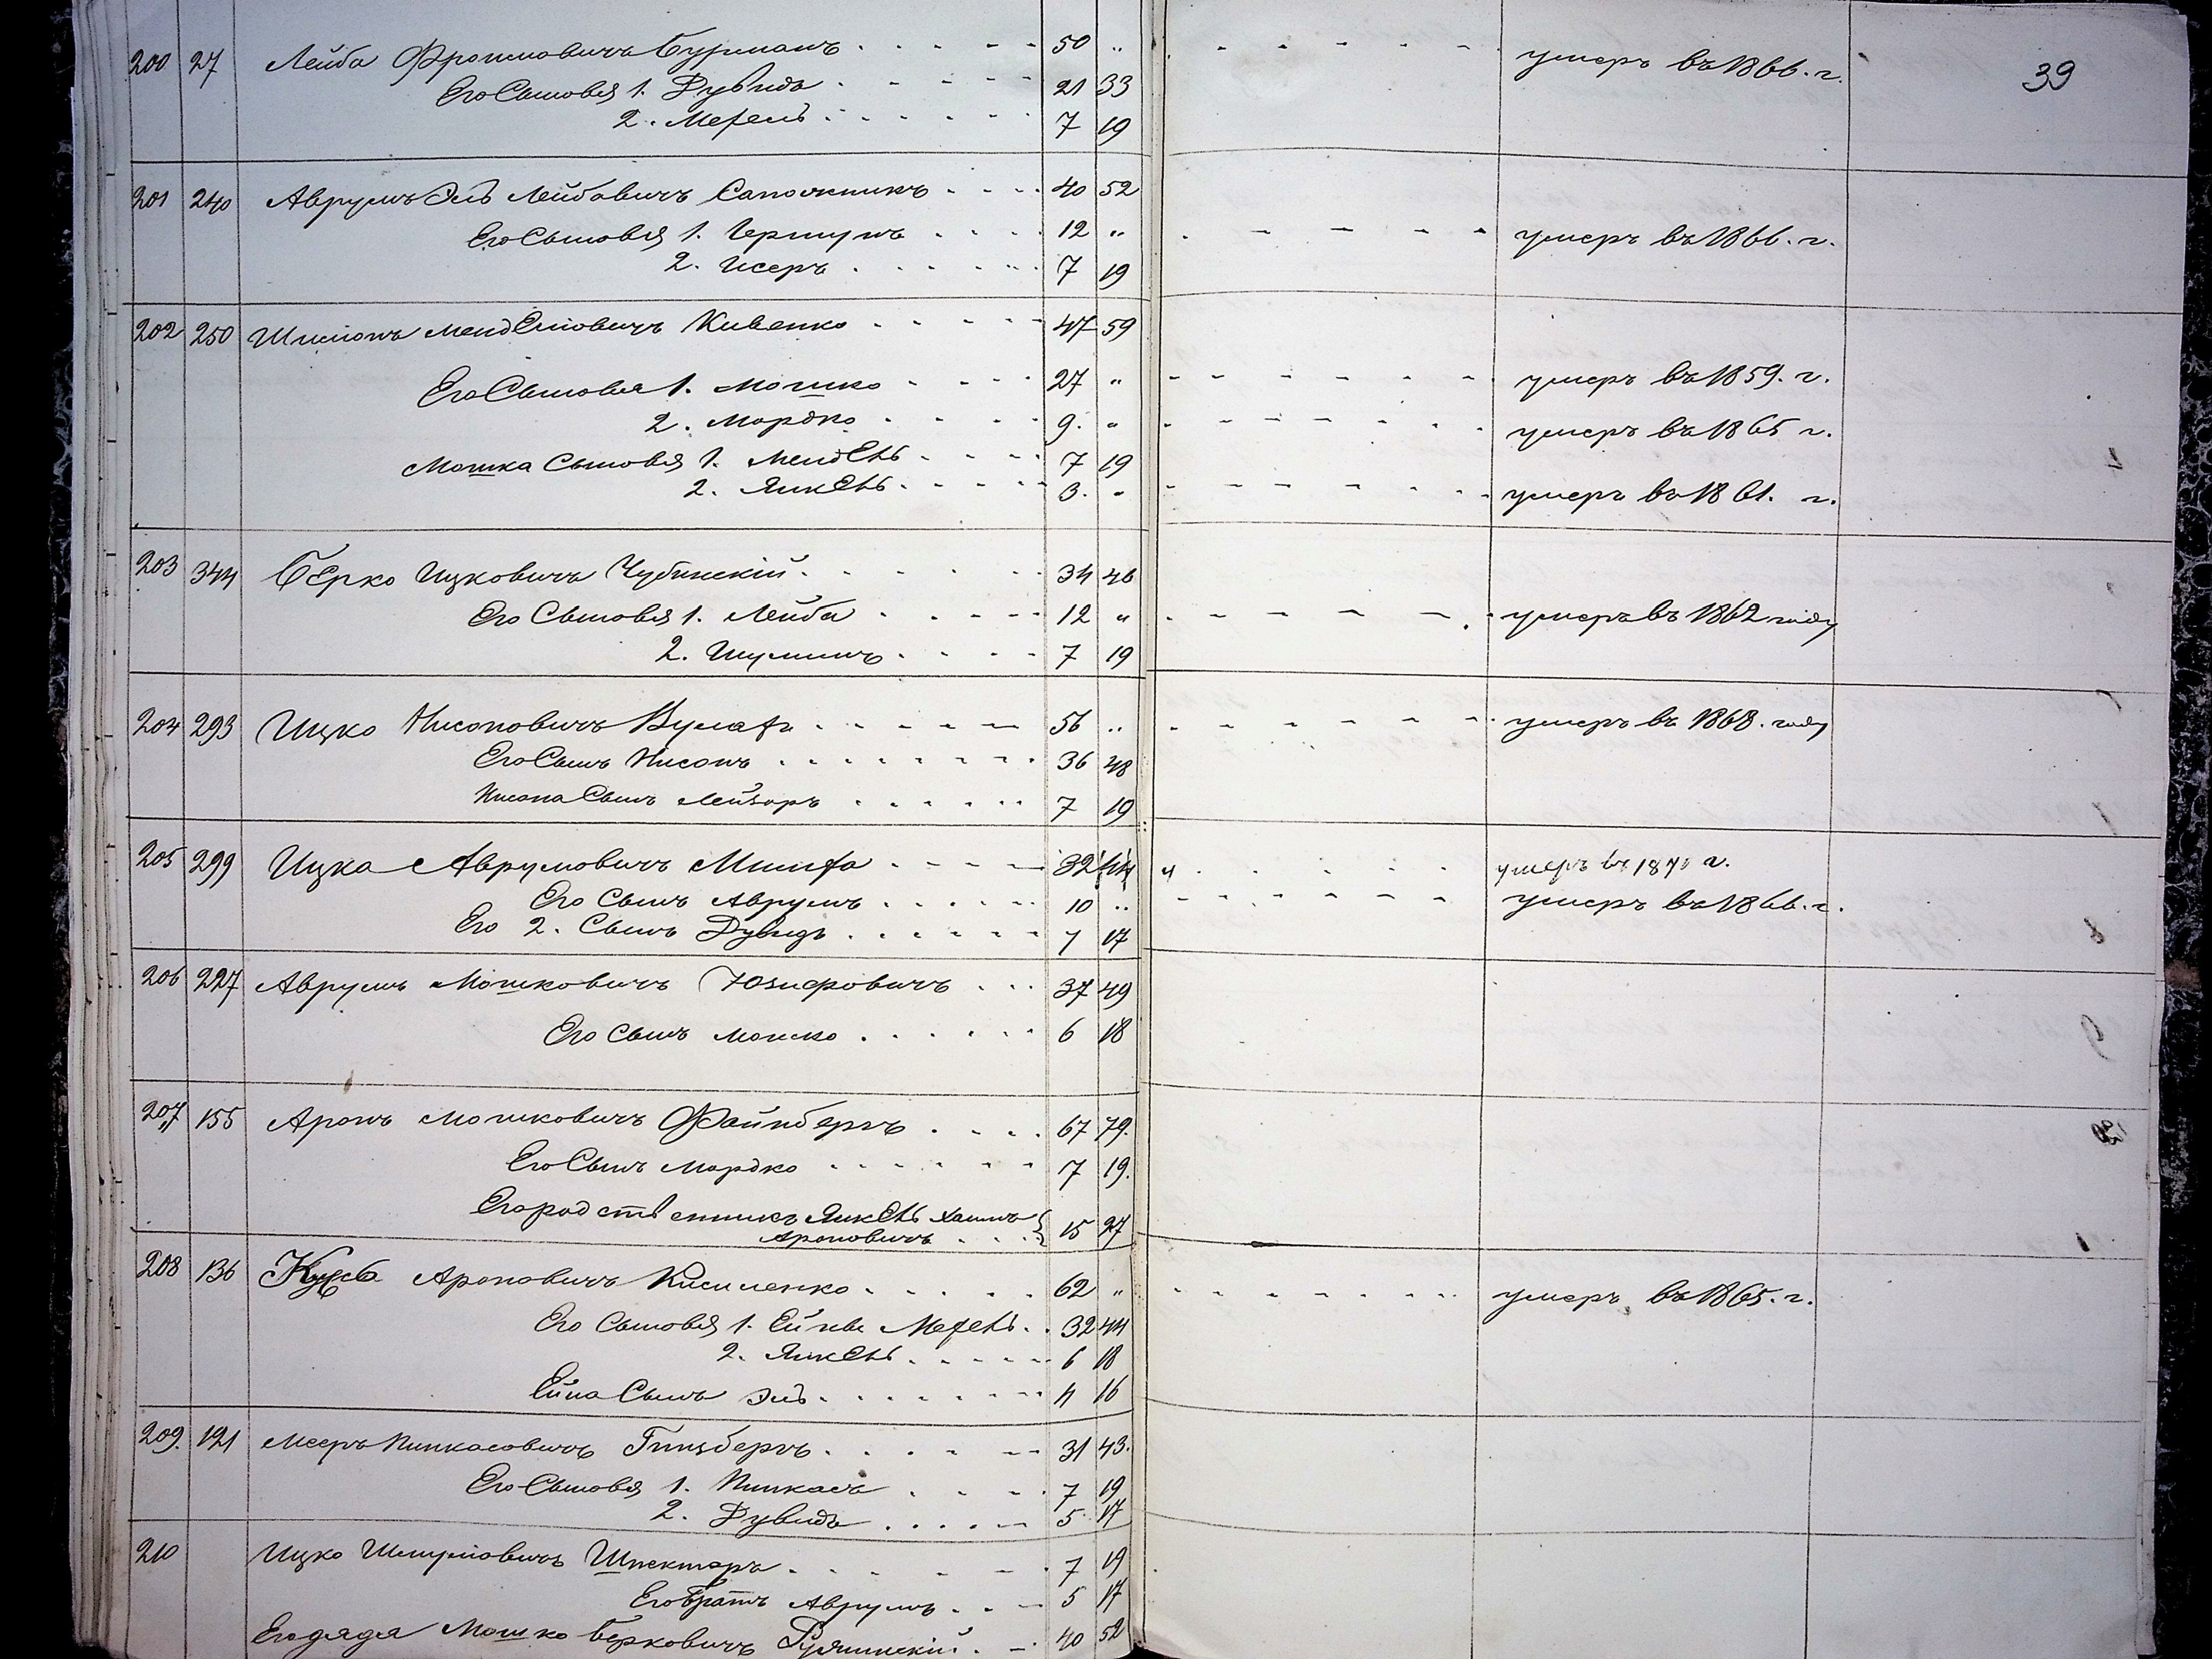 39
200 27 Лейба Фроимовичъ Бурманъ 50 „ умеръ въ 1866. г.
Его Сыновья 1. Дувидъ 21 33
2. Мехель 7 19
201 240 Аврумъ Эль Лейбовичъ Сапожникъ 40 52
Его Сыновья 1. Гершунъ 12 „ умеръ въ 1866. г.
2. Исеръ 7 19
202 250 Шимонъ Менделіовичъ Кивенко 47 59
Его Сыновья 1. Мошко 27 „ умеръ въ 1859. г.
2. Мордко 9. „ умеръ въ 1865 г.
Мошка Сыновья 1. Мендель 7 19
2. Янкель 3. „ умеръ въ 1861. г.
203 344 Берко Ицковичъ Чубинскій 34 46
Его Сыновья 1. Лейба 12 „ умеръ въ 1862 году
2. Шулимъ 7 19
204 293 Ицко Нисоновичъ 56 „ умеръ въ 1868. году
Его Сынъ Нисонъ 36 48
Нисона Сынъ Лейзоръ 7 19
205 299 Ицка Аврумовичъ 32 44 умеръ въ г.
Его Сынъ Аврумъ 10 „ умеръ въ 1866. г.
Его 2. Сынъ Дувидъ 7 17
206 227 Аврумъ Мошковичъ Юзифовичъ 37 49
Его Сынъ Мошко 6 18
207 155 Аронъ Мошковичъ Файнбергъ 67 79.
Его Сынъ Мордко 7 19.
Его родственникъ Янкель Хаимъ
Ароновичъ 15 27
208 136 Ароновичъ Кисиленко 62 „ умеръ въ 1865. г.
Его Сыновья 1. Мехель 32 44
2. Янкель 6 18
Сынъ Эль 4 16
209. 121 Мееръ Пинкасовичъ Гинзбергъ 31 43.
Его Сыновья 1. Пинкасъ 7 19
2. Дувидъ 5 17
210 Ицко Шмуліовичъ Шпекторъ 7 19
Его братъ Аврумъ 5 17
Его дядя Мошко Берковичъ 40 52